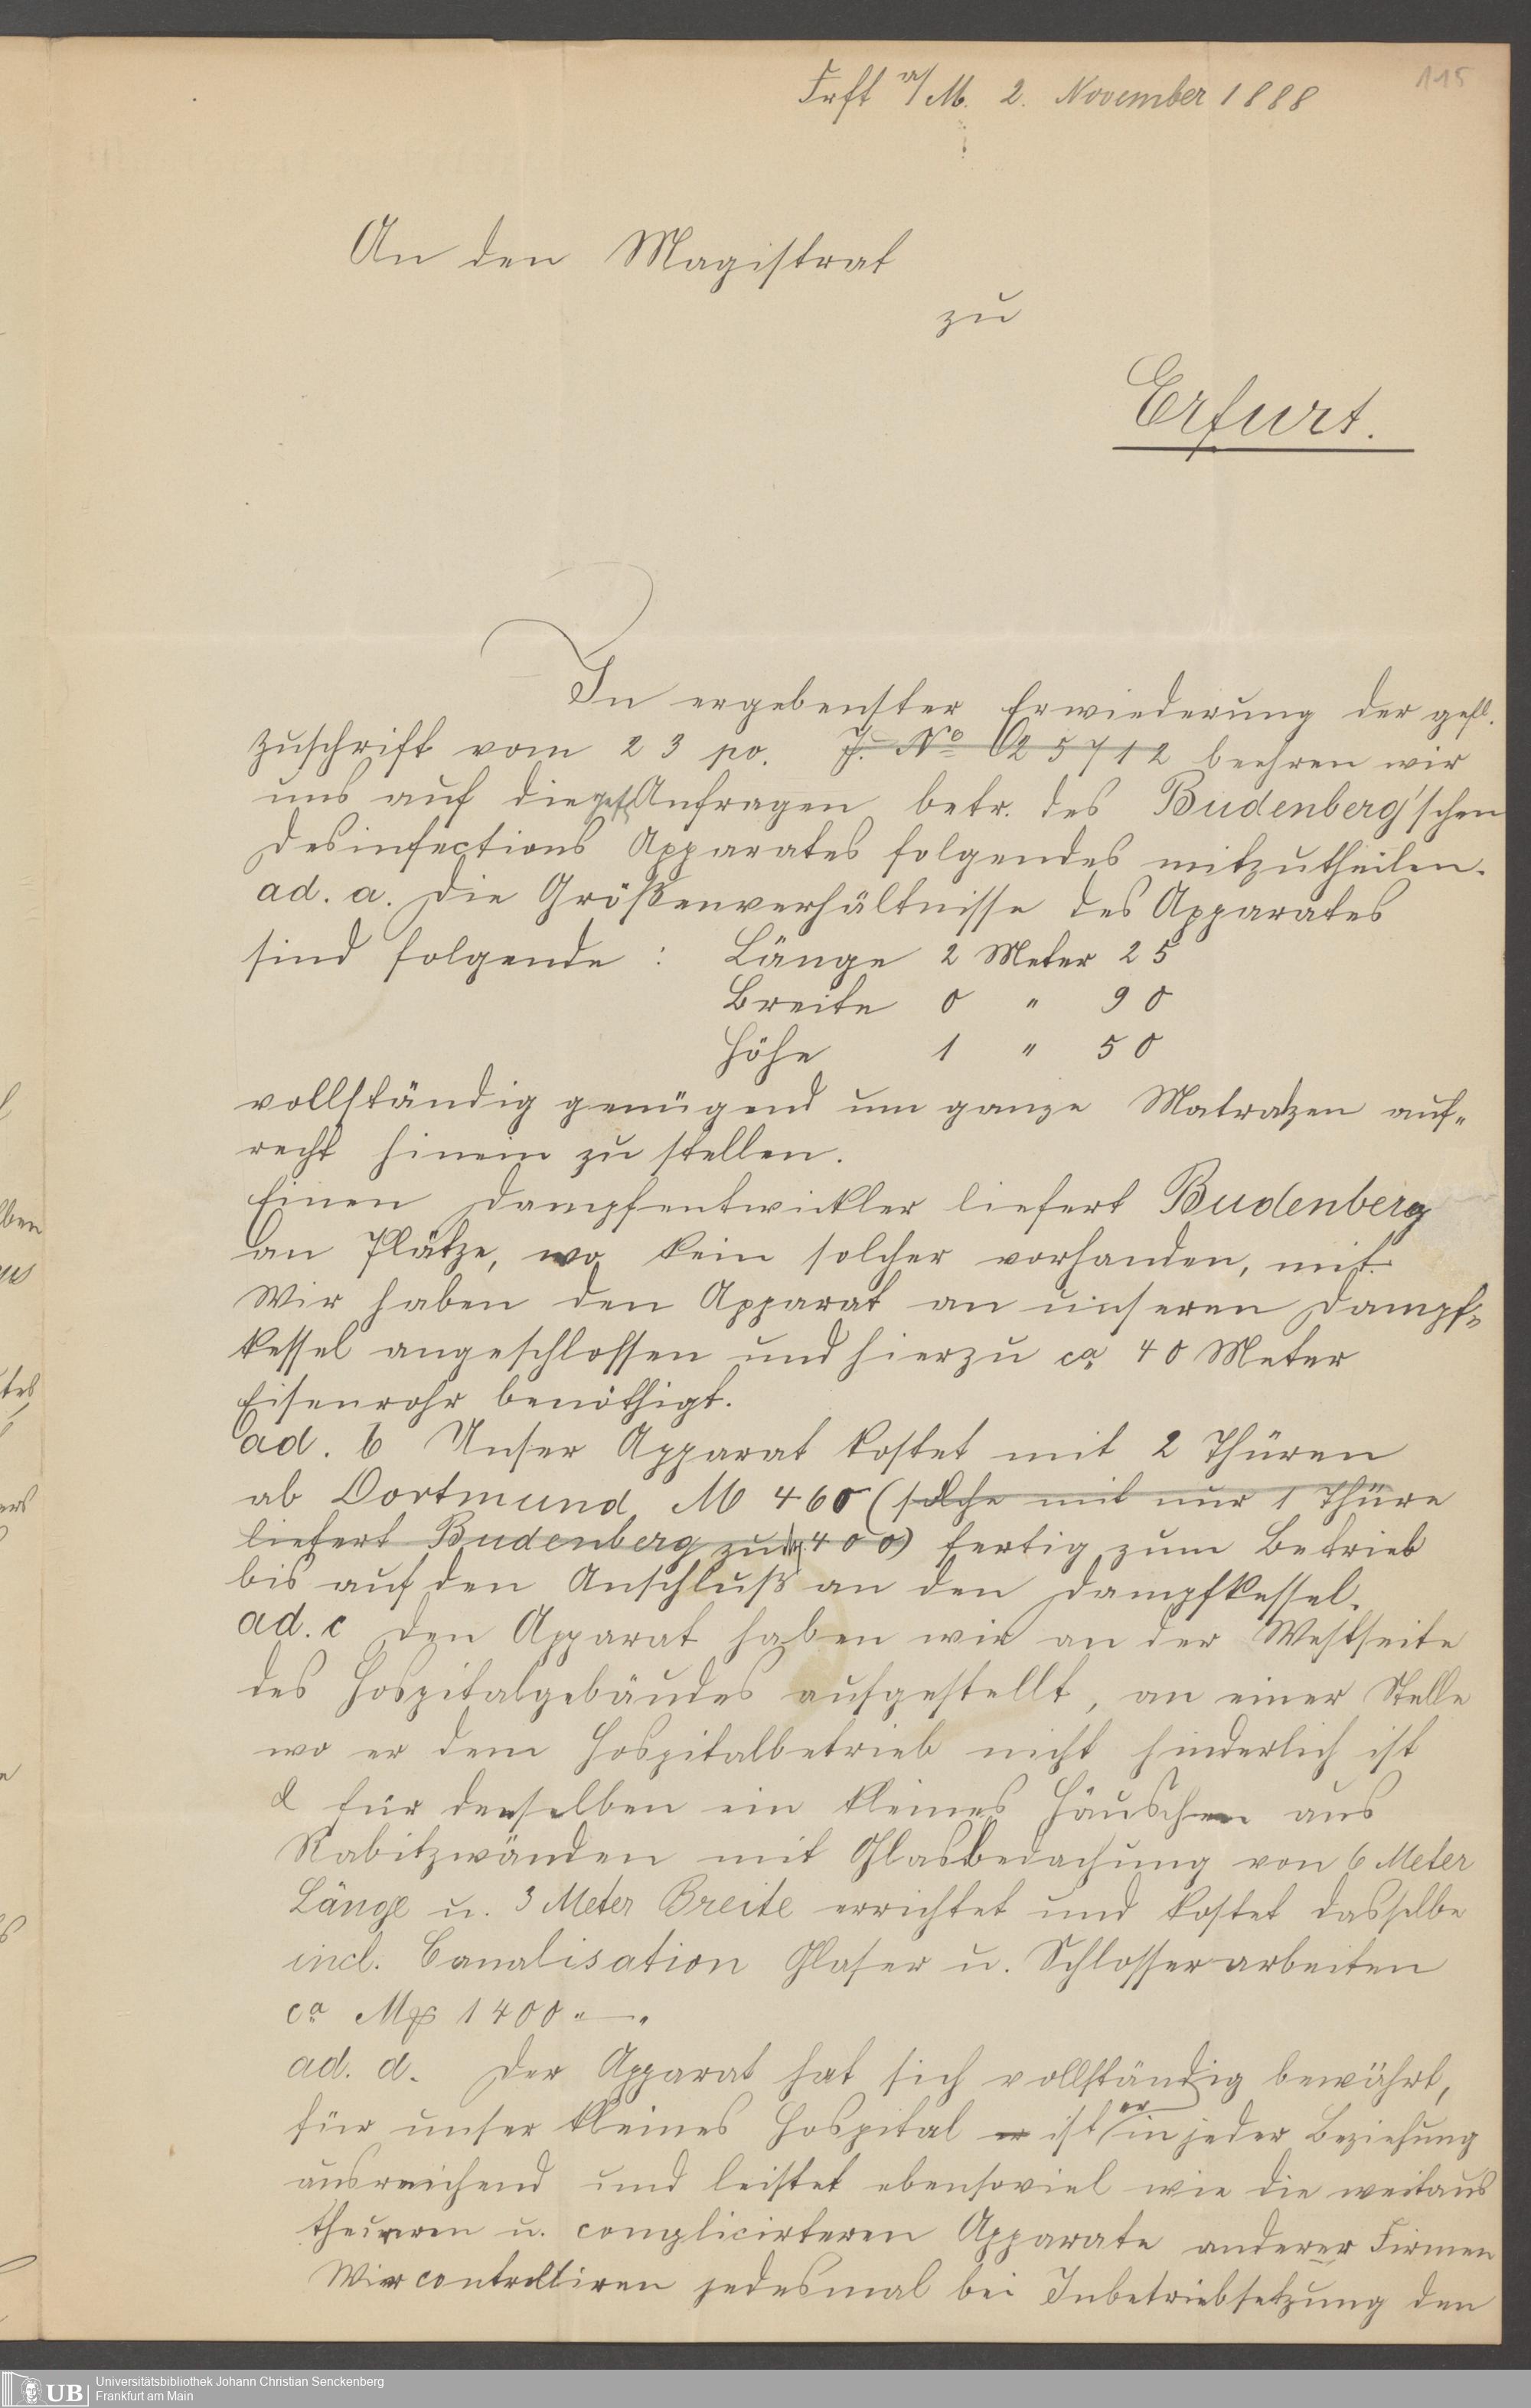 115
Frft a/M. 2. November 1888
An den Magistrat
zu
Erfurt.
In ergebenster Erwiederung der gefl.
Zuschrift vom 23 po. J. No 25712 beehren wir
uns auf die gefl Anfragen betr. des Budenberg'schen
Desinfections Apparates folgendes mitzutheilen.
ad. a. Die Größenverhältnisse des Apparates
sind folgende : Länge 2 Meter 25
Breite 0 " 90
Höhe 1 " 50
vollständig genügend um ganze Matratzen auf-
recht hinein zu stellen.
Einen Dampfentwickler liefert Budenberg
an Plätze, wo kein solcher vorhanden, mit.
Wir haben den Apparat an unseren Dampf-
kessel angeschlossen und hierzu ca 40 Meter
Eisenrohr benöthigt.
ad. b Unser Apparat kostet mit 2 Thüren
ab Dortmund M 460 (solche mit nur 1 Thüre
liefert Budenberg zu 400) fertig zum Betrieb
bis auf den Anschluß an den Dampfkessel.
ad. c Den Apparat haben wir an der Westseite
des Hospitalgebäudes aufgestellt, an einer Stelle
wo er dem Hospitalbetrieb nicht hinderlich ist
& für denselben ein kleines Häuschen aus
Rabitzwänden mit Glasbedachung von 6 Meter
Länge u. 3 Meter Breite errichtet und kostet dasselbe
incl. Canalisation Glaser u. Schlosserarbeiten
ca Mk 1400.—.
ad. d. Der Apparat hat sich vollständig bewährt,
für unser kleines Hospital er ist er in jeder Beziehung
ausreichend und leistet ebensoviel wie die weitaus
theureren u. complicirteren Apparate anderer Firmen
Wir controlliren jedesmal bei Inbetriebsetzung den
lben
tes
ers
UB
Universitätsbibliothek Johann Christian Senckenberg
Frankfurt am Main